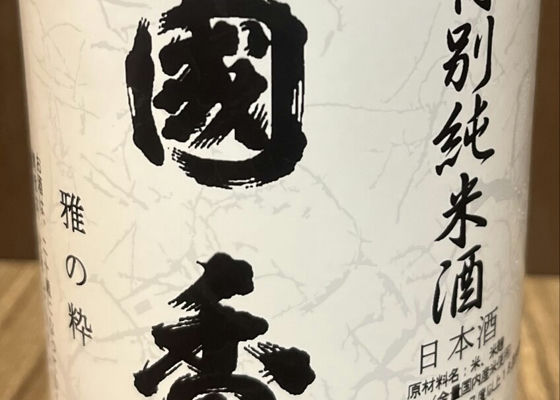 別純米酒
日本酒
原材料名：米、米麹
國香
雅の粋